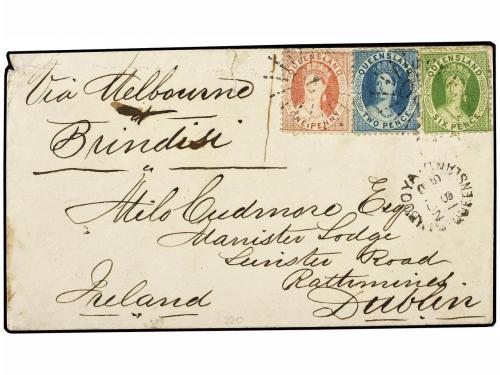 QUEENSLAND QUEENSLAND QUEENSLAND
ONE PENNY TWO PENCE SIX PENCE
Via Melbourne
Brindisi
Milo Cudmore Esq
Manister Lodge
Leinster Road
Rathmines
Ireland Dublin